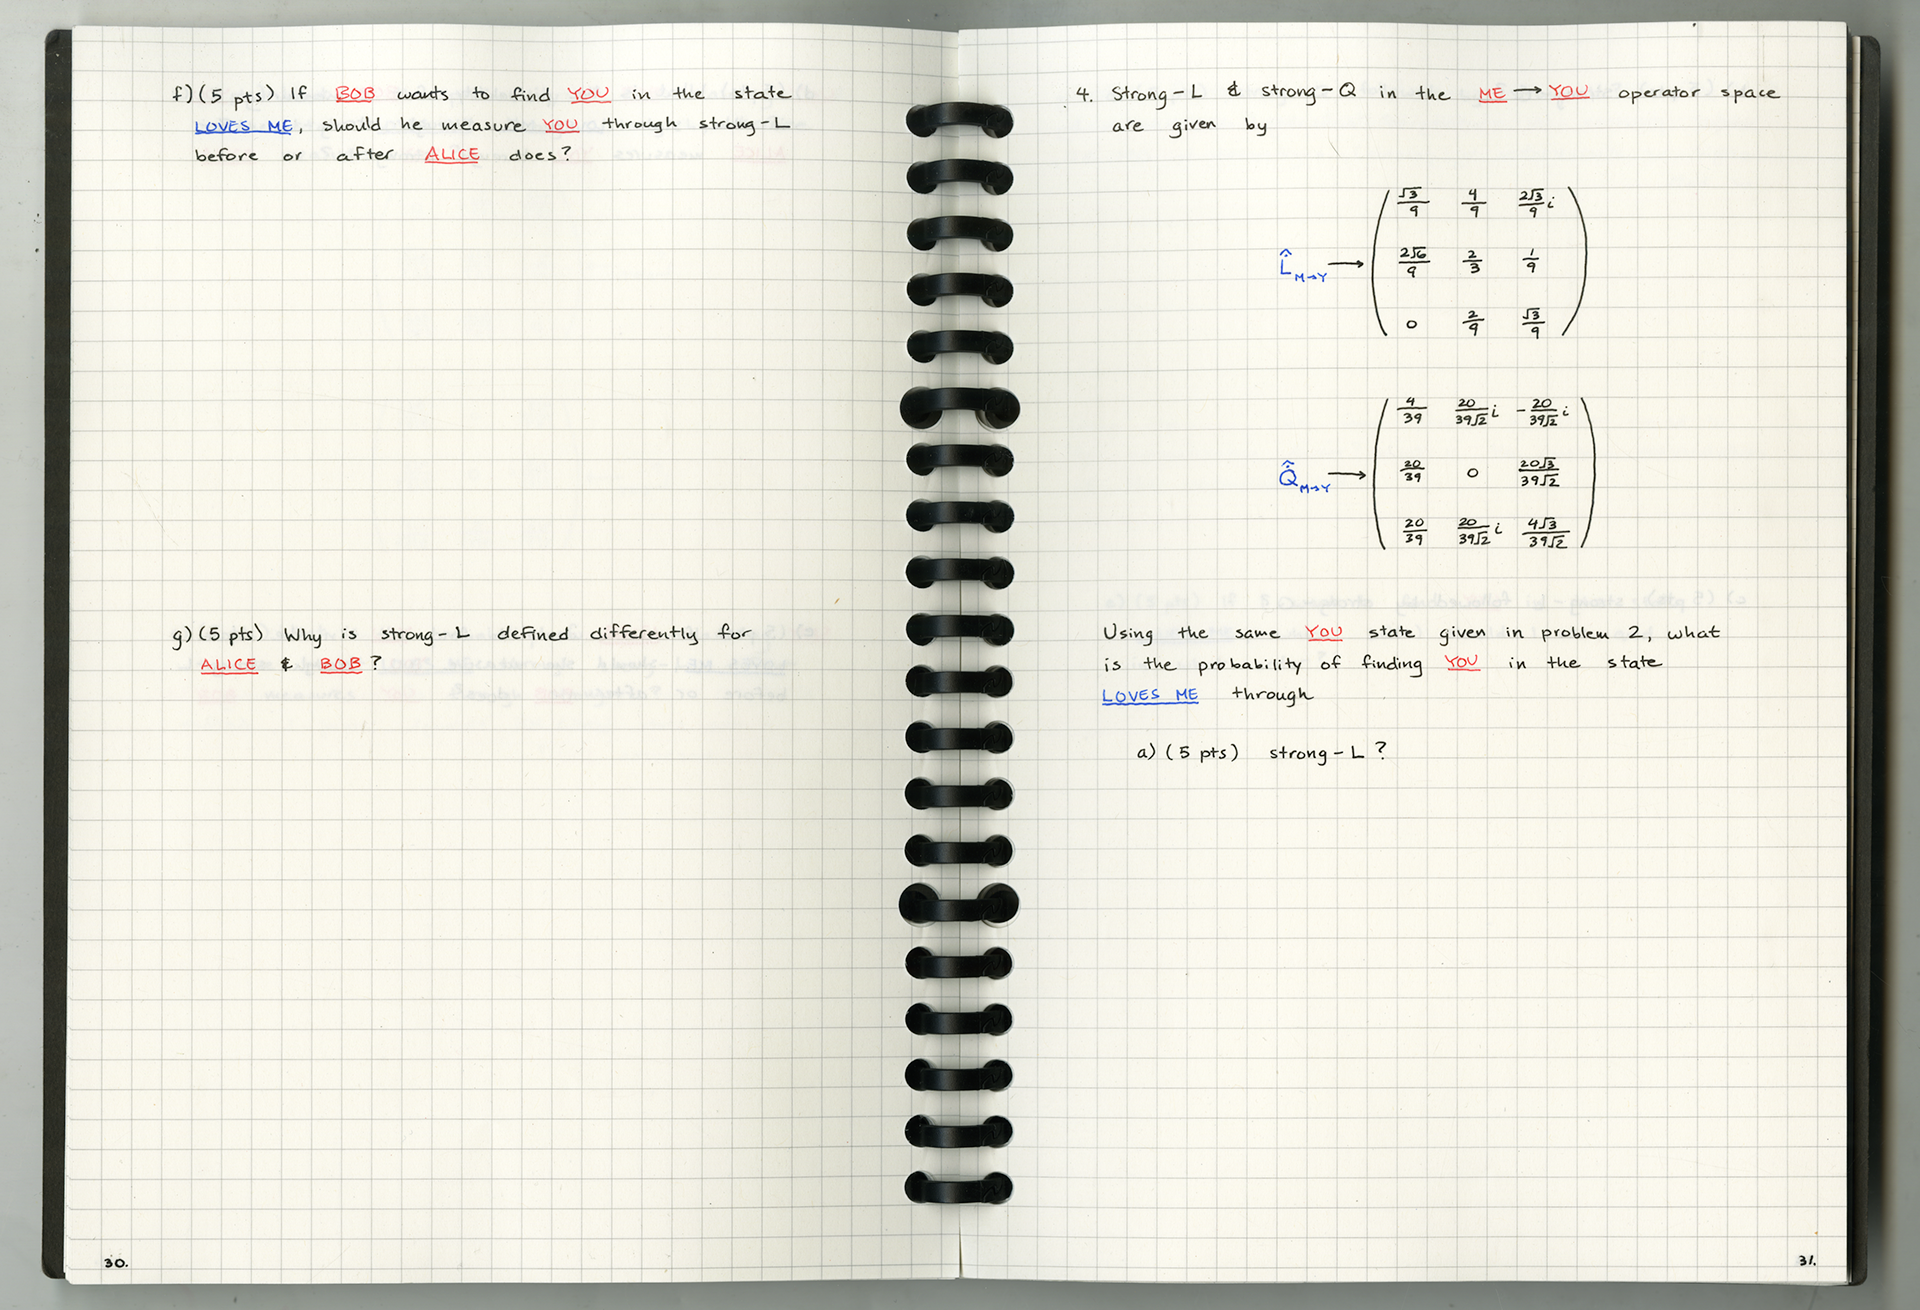 f) (5 pts) If BOB wants to find YOU in the state
LOVES ME, should he measure YOU through strong-L
before or after ALICE does?
g) (5 pts) Why is strong-L defined differently for
ALICE & BOB?
30.
4. Strong-L & strong-Q in the ME → YOU operator space
are given by
L̂ M→Y → ( √3/9 4/9 2√3/9 i
2√6/9 2/3 1/9
0 2/9 √3/9 )
Q̂ M→Y → ( 4/39 20/39√2 i -20/39√2 i
20/39 0 20√3/39√2
20/39 20/39√2 i 4√3/39√2 )
Using the same YOU state given in problem 2, what
is the probability of finding YOU in the state
LOVES ME through
a) (5 pts) strong-L?
31.